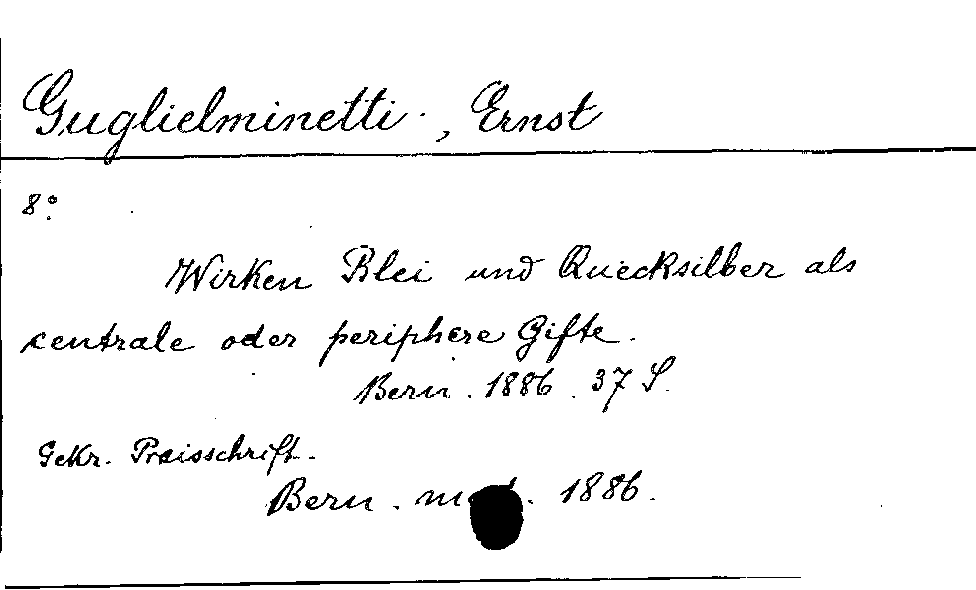 Guglielminetti, Ernst
8°
Wirken Blei und Quecksilber als
centrale oder periphere Gifte.
Bern. 1886. 37 S.
Gekr. Preisschrift.
Bern. 1886.